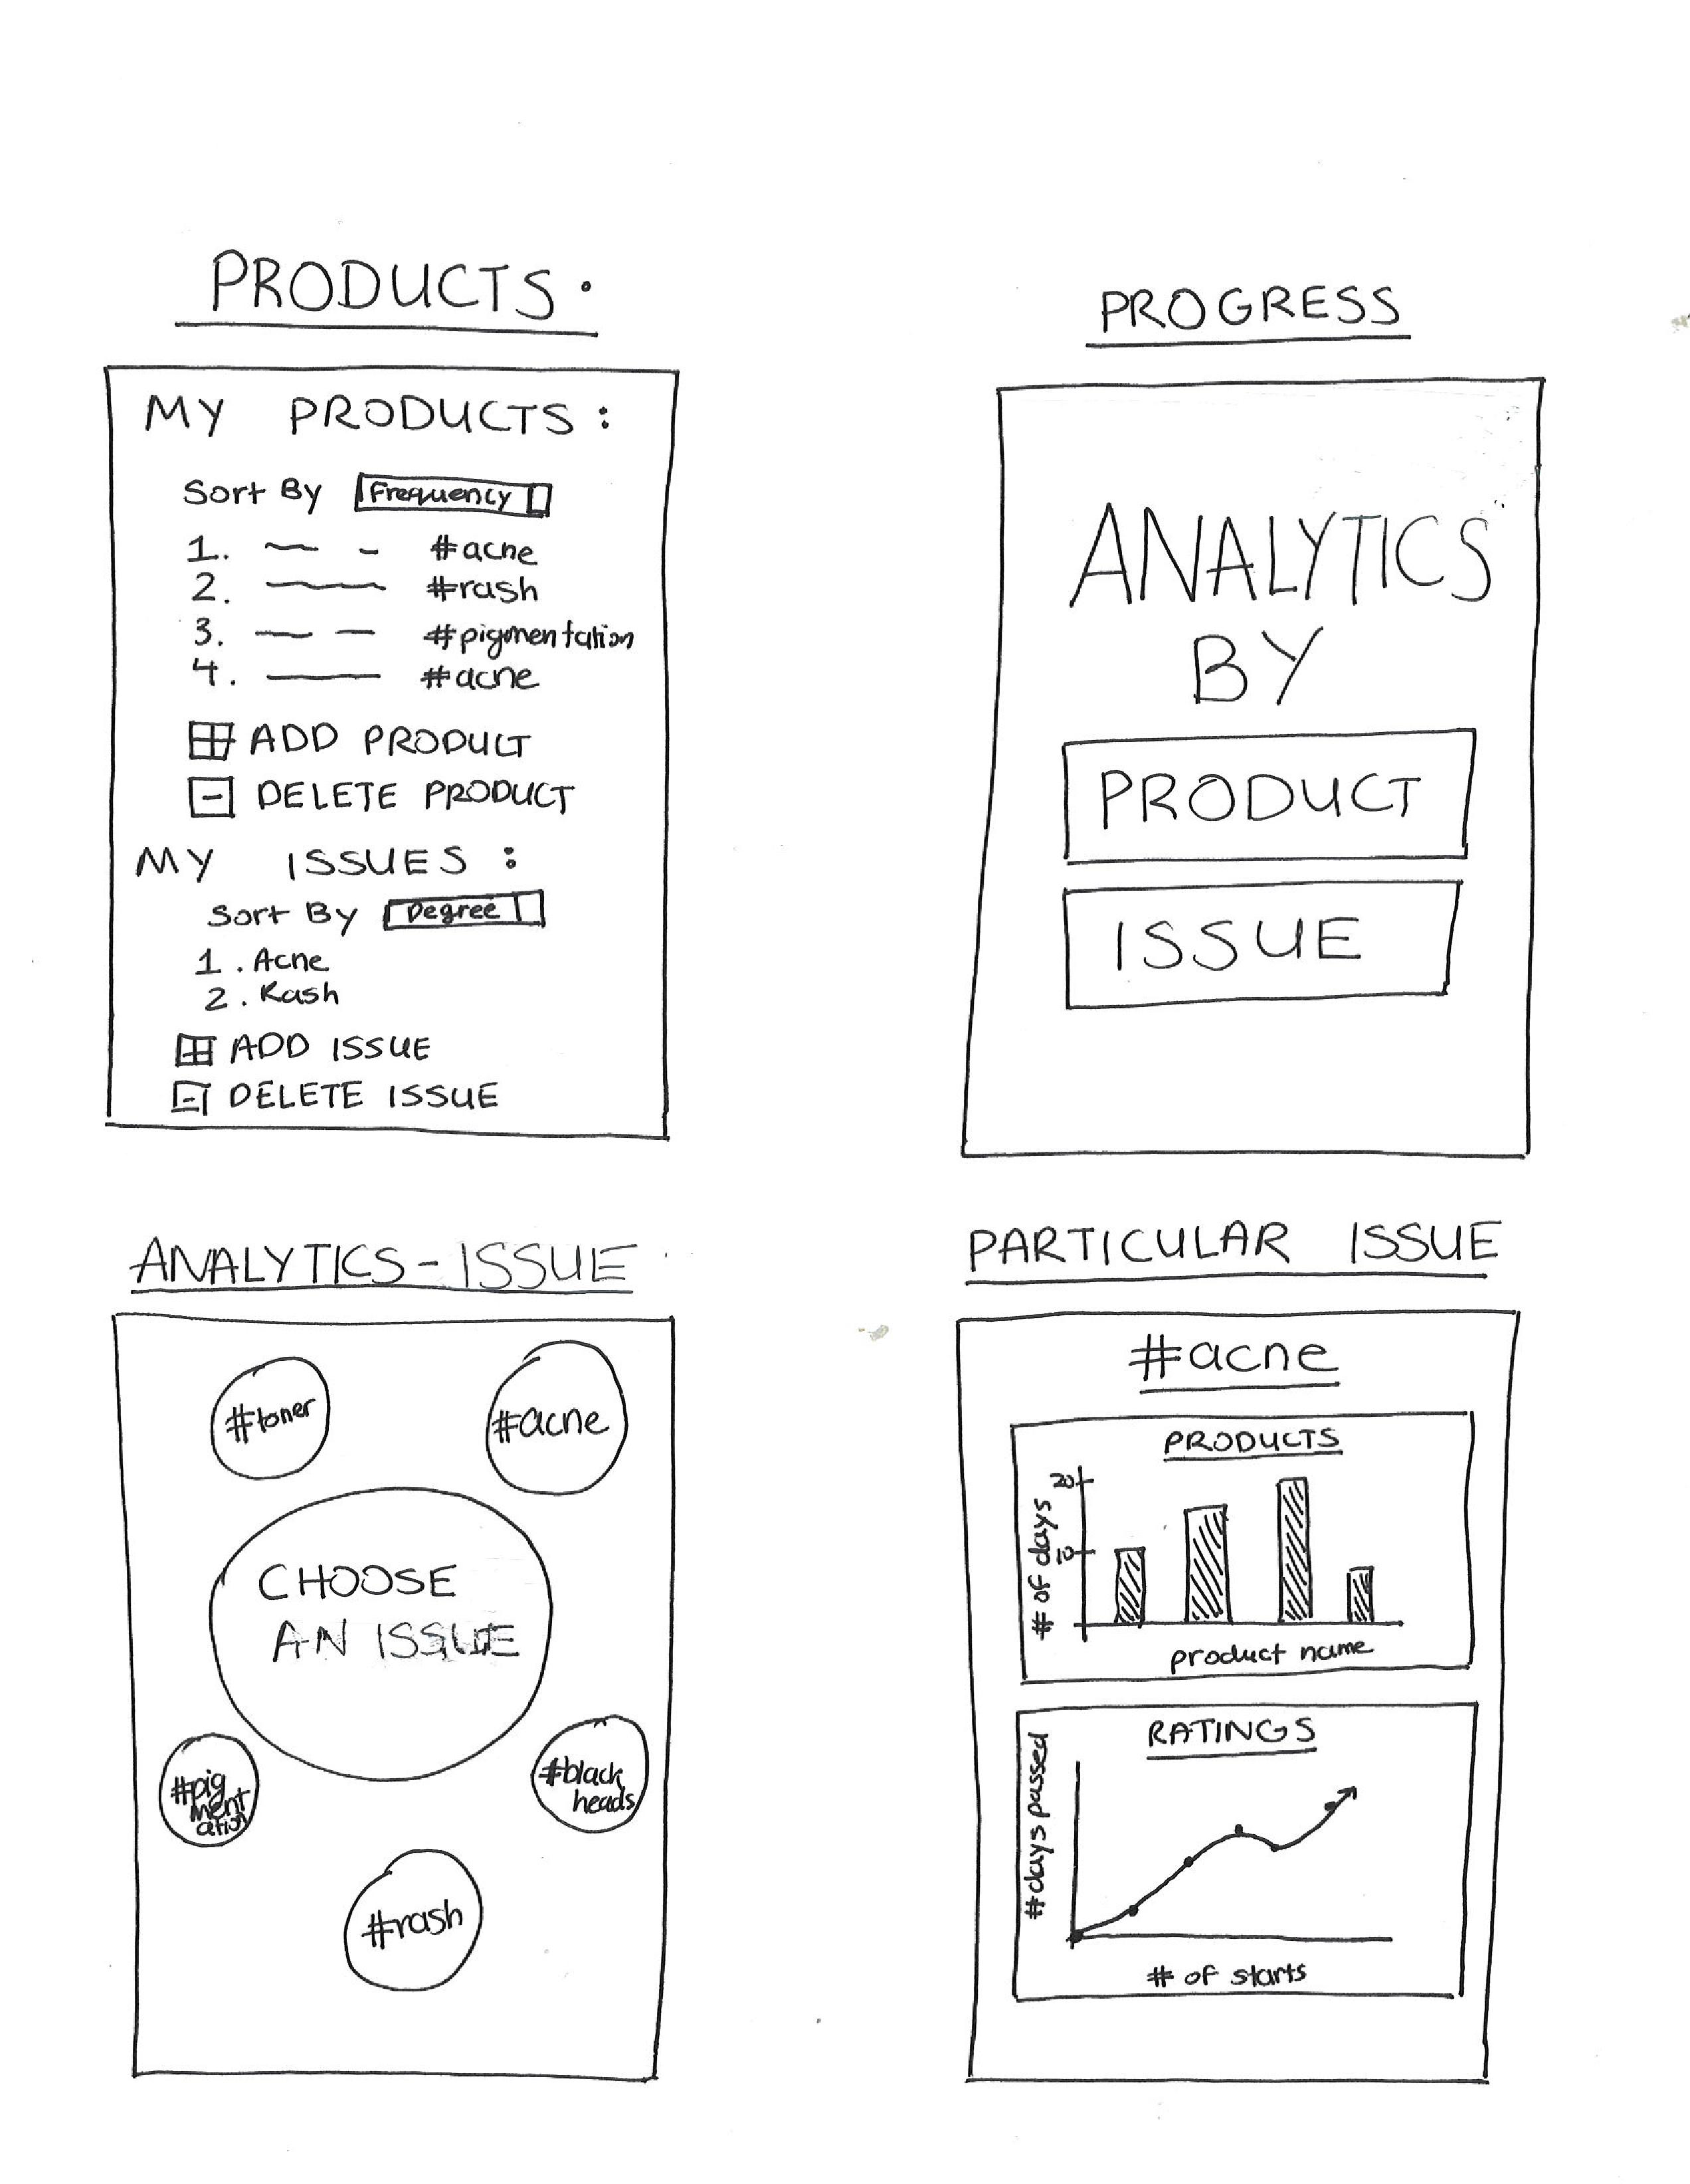 PRODUCTS.
MY PRODUCTS:
Sort By Frequency
1. #acne
2. #rash
3. #pigmentation
4. #acne
ADD PRODUCT
DELETE PRODUCT
MY ISSUES:
Sort By Degree
1. Acne
2. Rash
ADD ISSUE
DELETE ISSUE
PROGRESS
ANALYTICS
BY
PRODUCT
ISSUE
ANALYTICS-ISSUE
#toner
#acne
CHOOSE
AN ISSUE
#pig
ment
ation
#black
heads
#rash
PARTICULAR ISSUE
#acne
PRODUCTS
# of days
20
10
product name
RATINGS
#days passed
# of starts